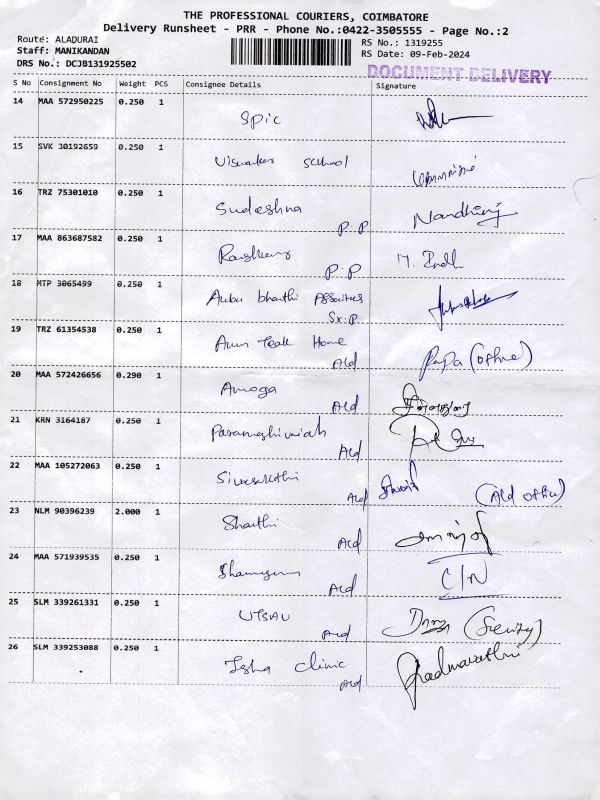 THE PROFESSIONAL COURIERS, COIMBATORE
Delivery Runsheet - PRR - Phone No.:0422-3505555 - Page No.:2
Route: ALADURAI
RS No.: 1319255
Staff: MANIKANDAN
RS Date: 09-Feb-2024
DRS No.: DCJB131925502
DOCUMENT DELIVERY
S No Consignment No Weight PCS Consignee Details Signature
14 MAA 572950225 0.250 1
Spic
15 SVK 30192659 0.250 1
Viswanker school
16 TRZ 75301010 0.250 1
Sudeshna P.P Nandhini
17 MAA 863687582 0.250 1
P.P
18 MTP 3065499 0.250 1
Anbu bharthi
Sr.P
19 TRZ 61354538 0.250 1
Arun Teak Home
Ald Papa (office)
20 MAA 572426656 0.290 1
Amoga
Ald
21 KRN 3164187 0.250 1
Ald
22 MAA 105272063 0.250 1
Sivasakthi
Ald (Ald office)
23 NLM 90396239 2.000 1
Shakthi
Ald
24 MAA 571939535 0.250 1
Shanmugam
Ald C/N
25 SLM 339261331 0.250 1
UTSAV
Ald
26 SLM 339253088 0.250 1
Isha Clinic
Ald Padmavathi